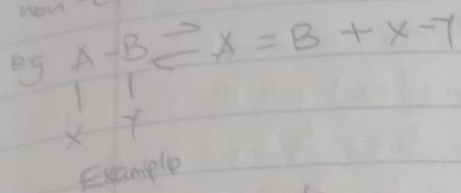 non
eg A - B ⇌ A = B + X - Y
| |
X Y
Example